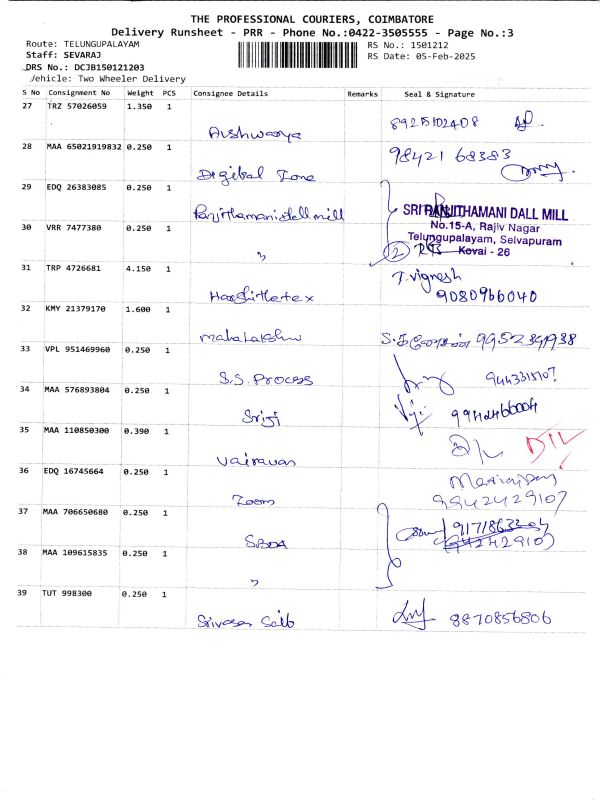 THE PROFESSIONAL COURIERS, COIMBATORE
Delivery Runsheet - PRR - Phone No.:0422-3505555 - Page No.:3
Route: TELUNGUPALAYAM
RS No.: 1501212
Staff: SEVARAJ
RS Date: 05-Feb-2025
DRS No.: DCJB150121203
Vehicle: Two Wheeler Delivery
S No Consignment No Weight PCS Consignee Details Remarks Seal & Signature
27 TRZ 57026059 1.350 1
Aishwarya
28 MAA 65021919832 0.250 1
Digital Zone 98421 68383
29 EDQ 26383085 0.250 1
Ranjithamanidallmill
SRI RANJITHAMANI DALL MILL
No.15-A, Rajiv Nagar
Telungupalayam, Selvapuram
Kovai - 26
30 VRR 7477380 0.250 1
" 2
31 TRP 4726681 4.150 1
T. Vignesh
Harshithetex 9080966040
32 KMY 21379170 1.600 1
Mahalakshmi
33 VPL 951469960 0.250 1
S.S. Process
34 MAA 576893804 0.250 1
Sriji 9942466004
35 MAA 110850300 0.390 1
D/L
Vairavan
36 EDQ 16745664 0.250 1
Zoom 9942429107
37 MAA 706650680 0.250 1
SBOA
38 MAA 109615835 0.250 1
"
39 TUT 998300 0.250 1
8870856806